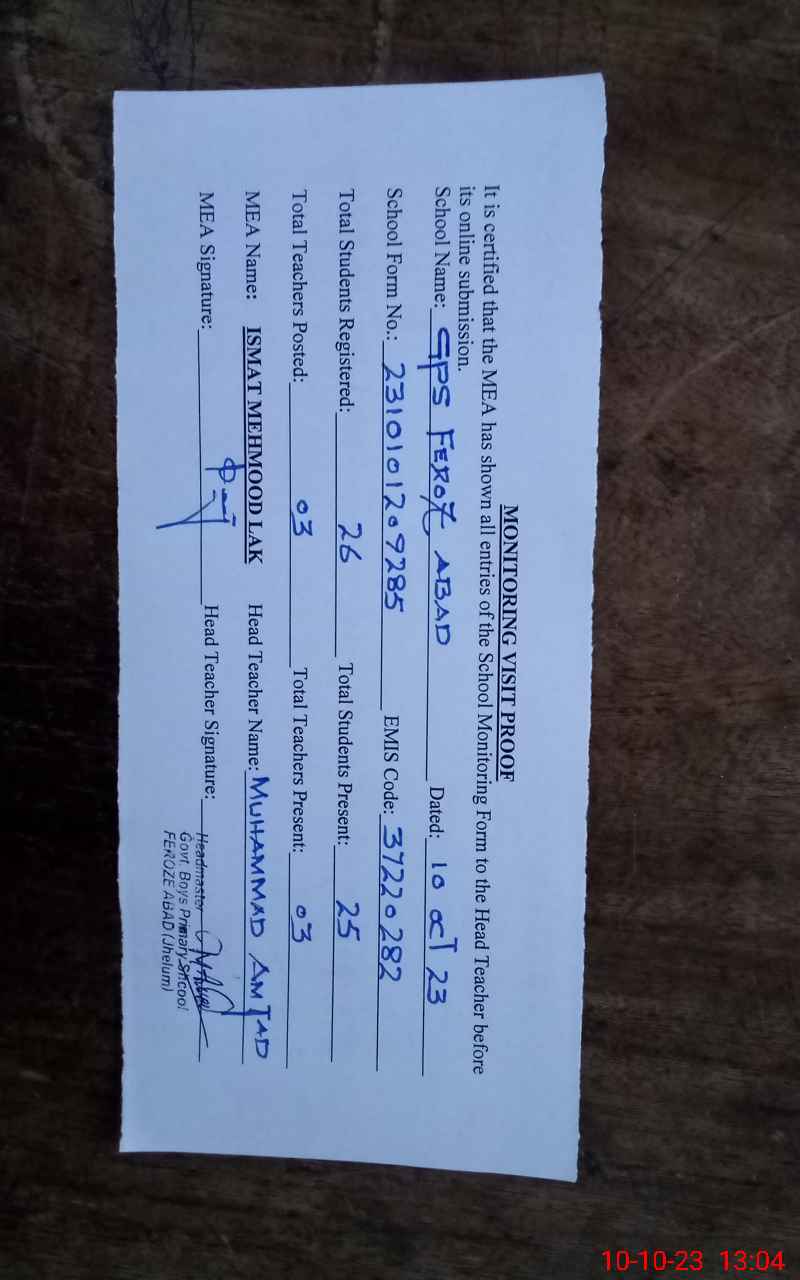 MONITORING VISIT PROOF
It is certified that the MEA has shown all entries of the School Monitoring Form to the Head Teacher before
its online submission.
School Name: GPS FEROZ ABAD Dated: 10 OCT 23
School Form No.: 2310101209285 EMIS Code: 37220282
Total Students Registered: 26 Total Students Present: 25
Total Teachers Posted: 03 Total Teachers Present: 03
MEA Name: ISMAT MEHMOOD LAK Head Teacher Name: MUHAMMAD AMJAD
MEA Signature: Head Teacher Signature:
Headmaster
Govt. Boys Primary School
FEROZE ABAD (Jhelum)
10-10-23 13:04